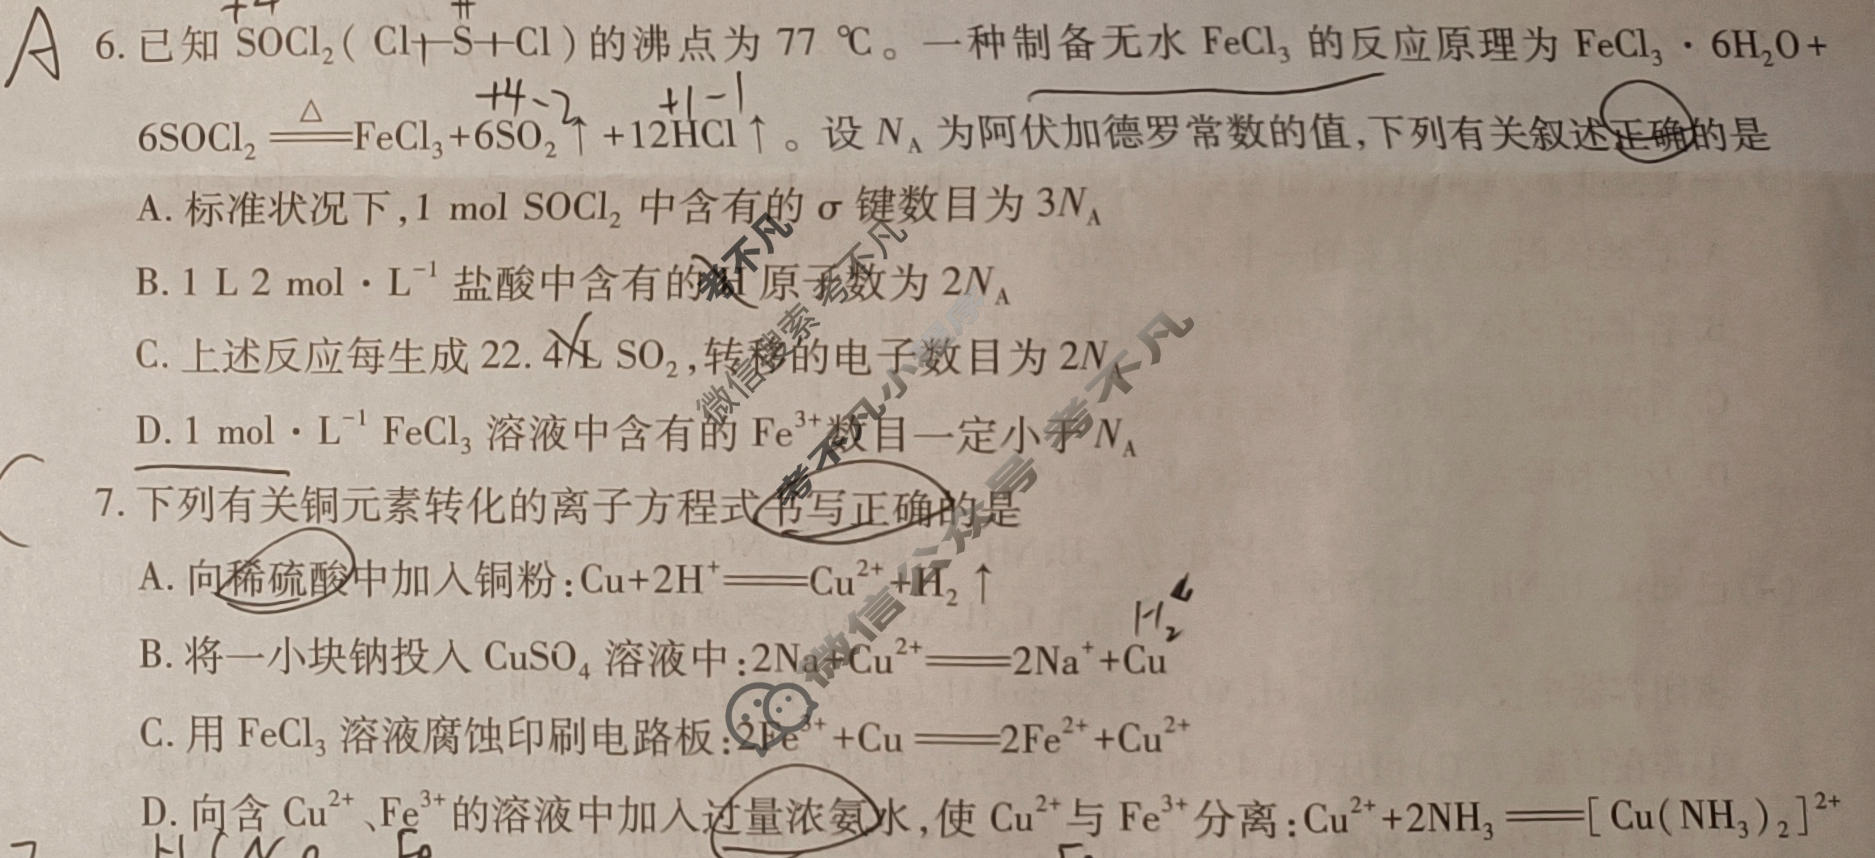 +4
A 6. 已知 SOCl₂( Cl—S—Cl )的沸点为 77 ℃。一种制备无水 FeCl₃ 的反应原理为 FeCl₃·6H₂O+
+4 -2 +1 -1
6SOCl₂ =△= FeCl₃+6SO₂↑+12HCl↑。设 N_A 为阿伏加德罗常数的值,下列有关叙述正确的是
A. 标准状况下,1 mol SOCl₂ 中含有的 σ 键数目为 3N_A
B. 1 L 2 mol·L⁻¹ 盐酸中含有的 H 原子数为 2N_A
C. 上述反应每生成 22.4 L SO₂,转移的电子数目为 2N_A
D. 1 mol·L⁻¹ FeCl₃ 溶液中含有的 Fe³⁺数目一定小于 N_A
C 7. 下列有关铜元素转化的离子方程式书写正确的是
A. 向稀硫酸中加入铜粉:Cu+2H⁺══Cu²⁺+H₂↑
H₂
B. 将一小块钠投入 CuSO₄ 溶液中:2Na+Cu²⁺══2Na⁺+Cu
C. 用 FeCl₃ 溶液腐蚀印刷电路板:2Fe³⁺+Cu══2Fe²⁺+Cu²⁺
D. 向含 Cu²⁺、Fe³⁺的溶液中加入过量浓氨水,使 Cu²⁺与 Fe³⁺分离:Cu²⁺+2NH₃══[Cu(NH₃)₂]²⁺
考不凡
微信搜索 考不凡
考不凡小程序
微信公众号 考不凡